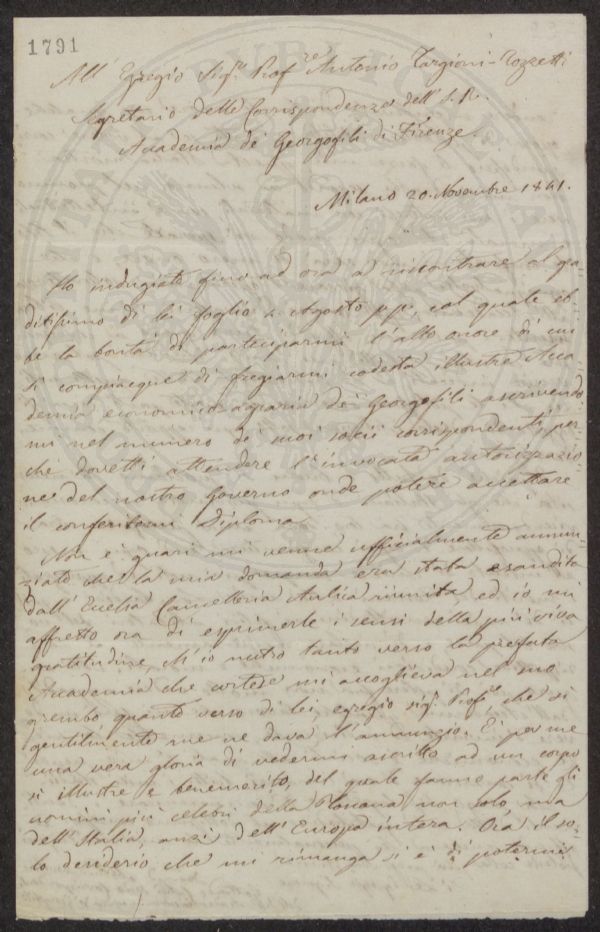 1791
All' Egregio Sig.r Prof.re Antonio Targioni-Tozzetti
Segretario delle Corrispondenze dell' I. R.
Accademia de' Georgofili di Firenze.
Milano 20. Novembre 1841.
Ho indugiato fino ad ora a riscontrare al gra-
ditissimo di lei foglio 4 Agosto p.p., col quale eb-
be la bontà di parteciparmi l'alto onore di cui
si compiacque di fregiarmi codesta illustre Acca-
demia economico-agraria dei Georgofili ascrivendo-
mi nel numero de' suoi socii corrispondenti, per-
chè dovetti attendere l'invocata autorizzazio-
ne del nostro Governo onde potere accettare
il conferitomi Diploma.
Non è guari mi venne ufficialmente annun-
ziato che la mia domanda era stata esaudita
dall' Eccelsa Cancelleria Aulica riunita, ed io mi
affretto ora di esprimerle i sensi della più viva
gratitudine, ch'io nutro tanto verso la prefata
Accademia che cortese mi accoglieva nel suo
grembo quanto verso di lei, egregio sig.r Prof.re, che sì
gentilmente me ne dava l'annunzio. È per me
una vera gloria di vedermi ascritto ad un corpo
sì illustre e benemerito, del quale fanno parte gli
uomini più celebri della Toscana non solo, ma
dell' Italia, anzi dell' Europa intera. Ora il so-
lo desiderio che mi rimanga si è di potermi